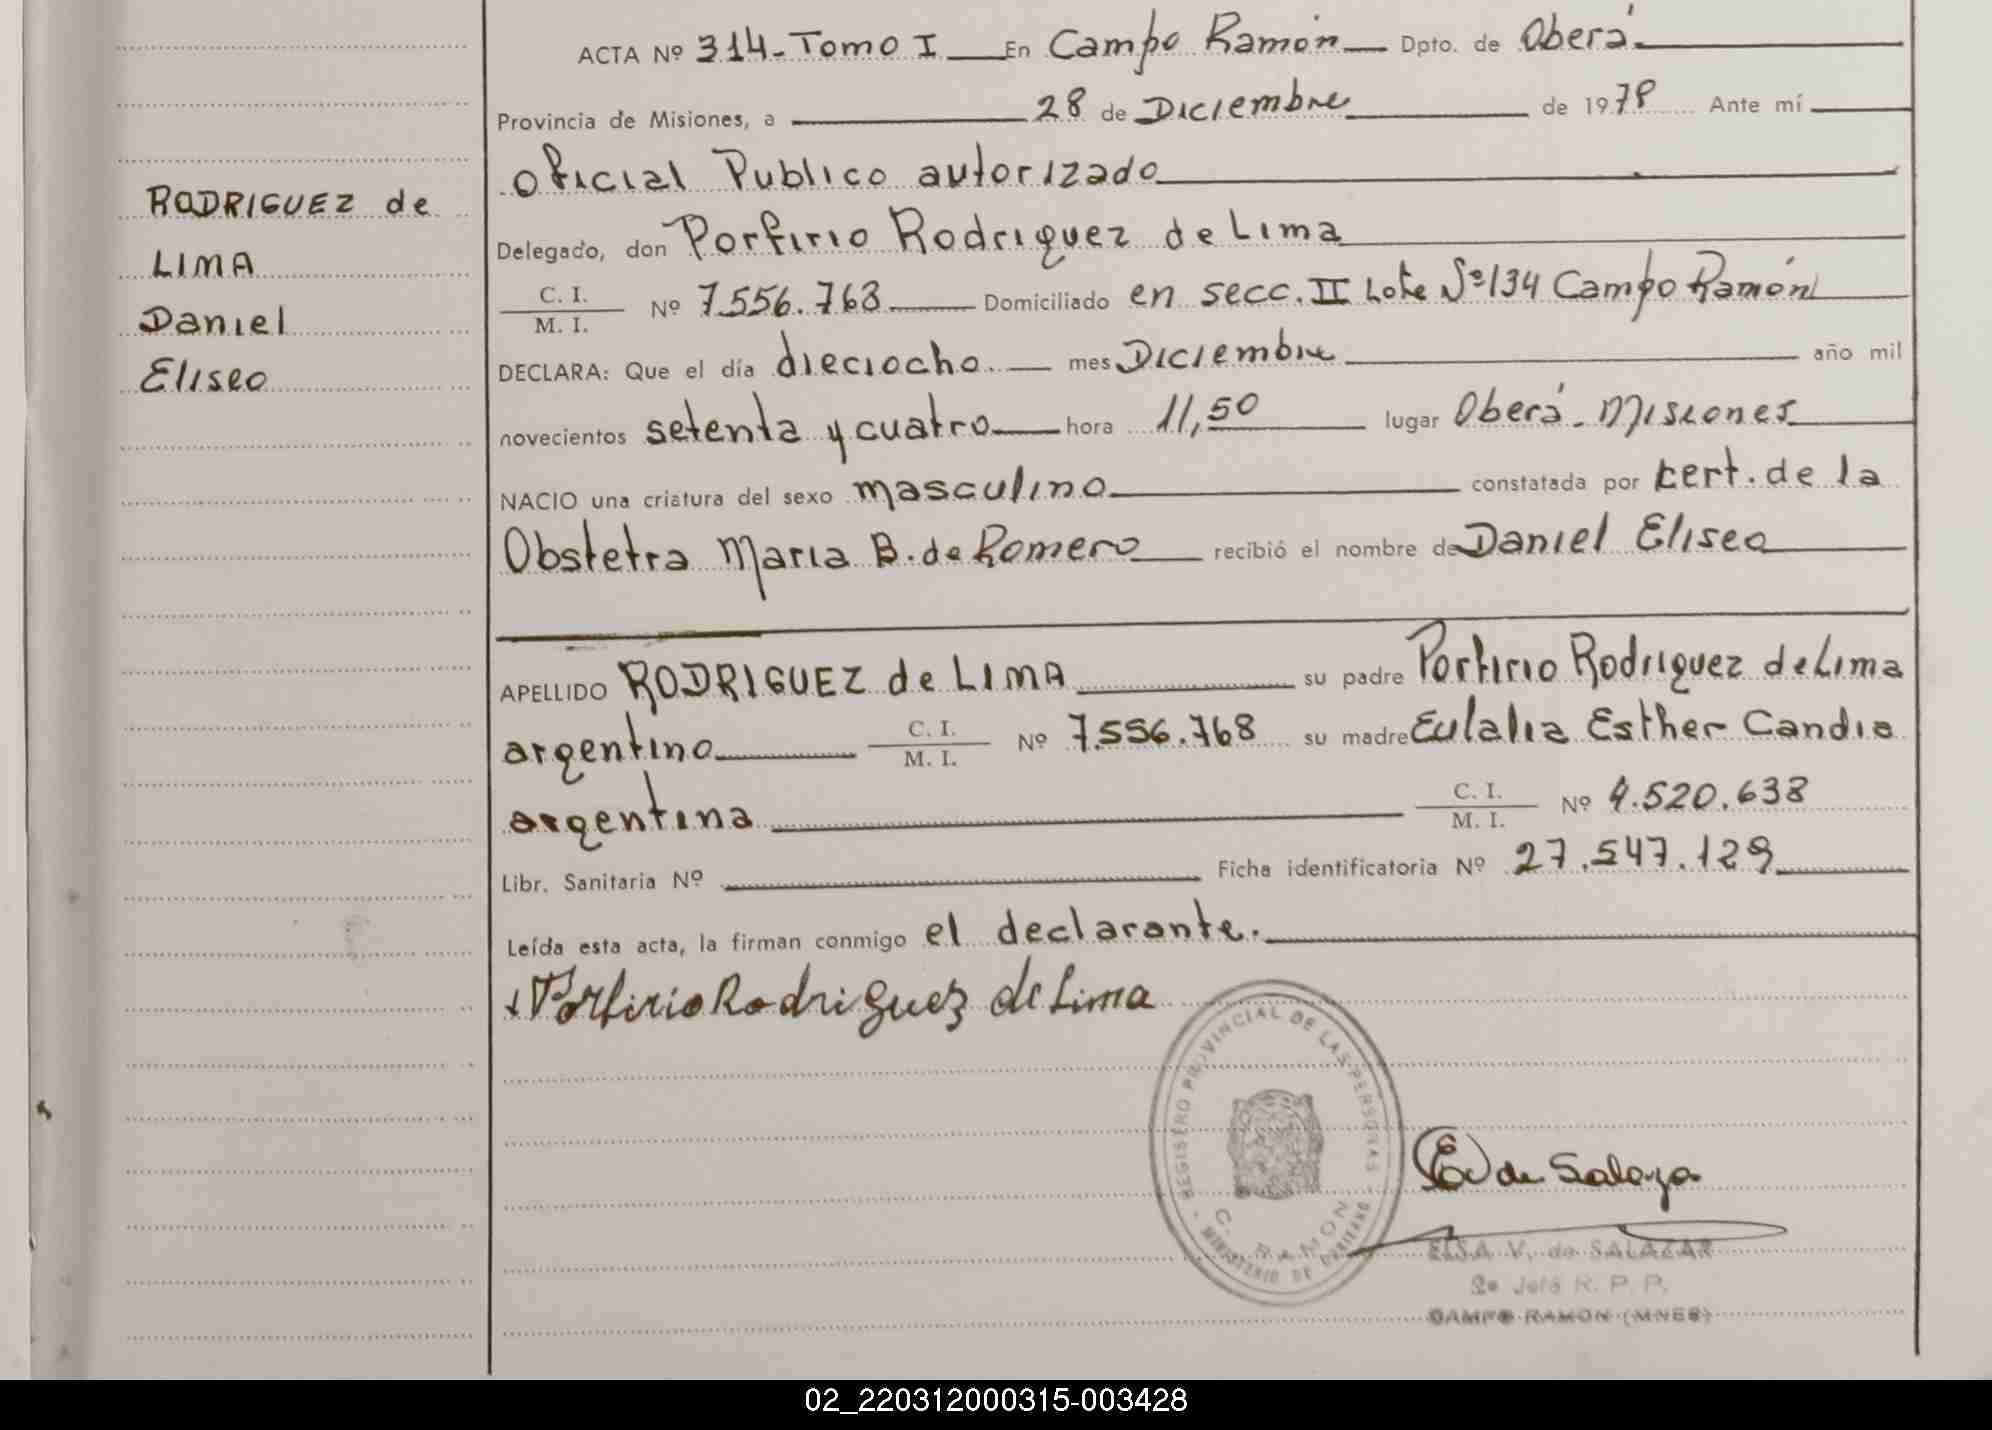 RODRIGUEZ de
LIMA
Daniel
Eliseo
ACTA Nº 314-Tomo I En Campo Ramón Dpto. de Oberá
Provincia de Misiones, a 28 de Diciembre de 1978 Ante mí
oficial Publico autorizado
Delegado, don Porfirio Rodriguez de Lima
C. I.
M. I. Nº 7.556.768 Domiciliado en secc. II Lote Nº 134 Campo Ramón
DECLARA: Que el día dieciocho. mes Diciembre año mil
novecientos setenta y cuatro hora 11,50 lugar Oberá - Misiones
NACIO una criatura del sexo masculino constatada por cert. de la
Obstetra Maria B. de Romero recibió el nombre de Daniel Eliseo
APELLIDO RODRIGUEZ de LIMA su padre Porfirio Rodriguez de Lima
argentino C. I.
M. I. Nº 7.556.768 su madre Eulalia Esther Candia
argentina C. I.
M. I. Nº 4.520.638
Libr. Sanitaria Nº Ficha identificatoria Nº 27.547.129
Leída esta acta, la firman conmigo el declarante.
Porfirio Rodriguez de Lima
REGISTRO PROVINCIAL DE LAS PERSONAS
C. RAMON
MINISTERIO DE GOBIERNO
E V de Salazar
ELSA V. de SALAZAR
2º Jefe R. P. P.
CAMPO RAMON (MNES)
02_220312000315-003428